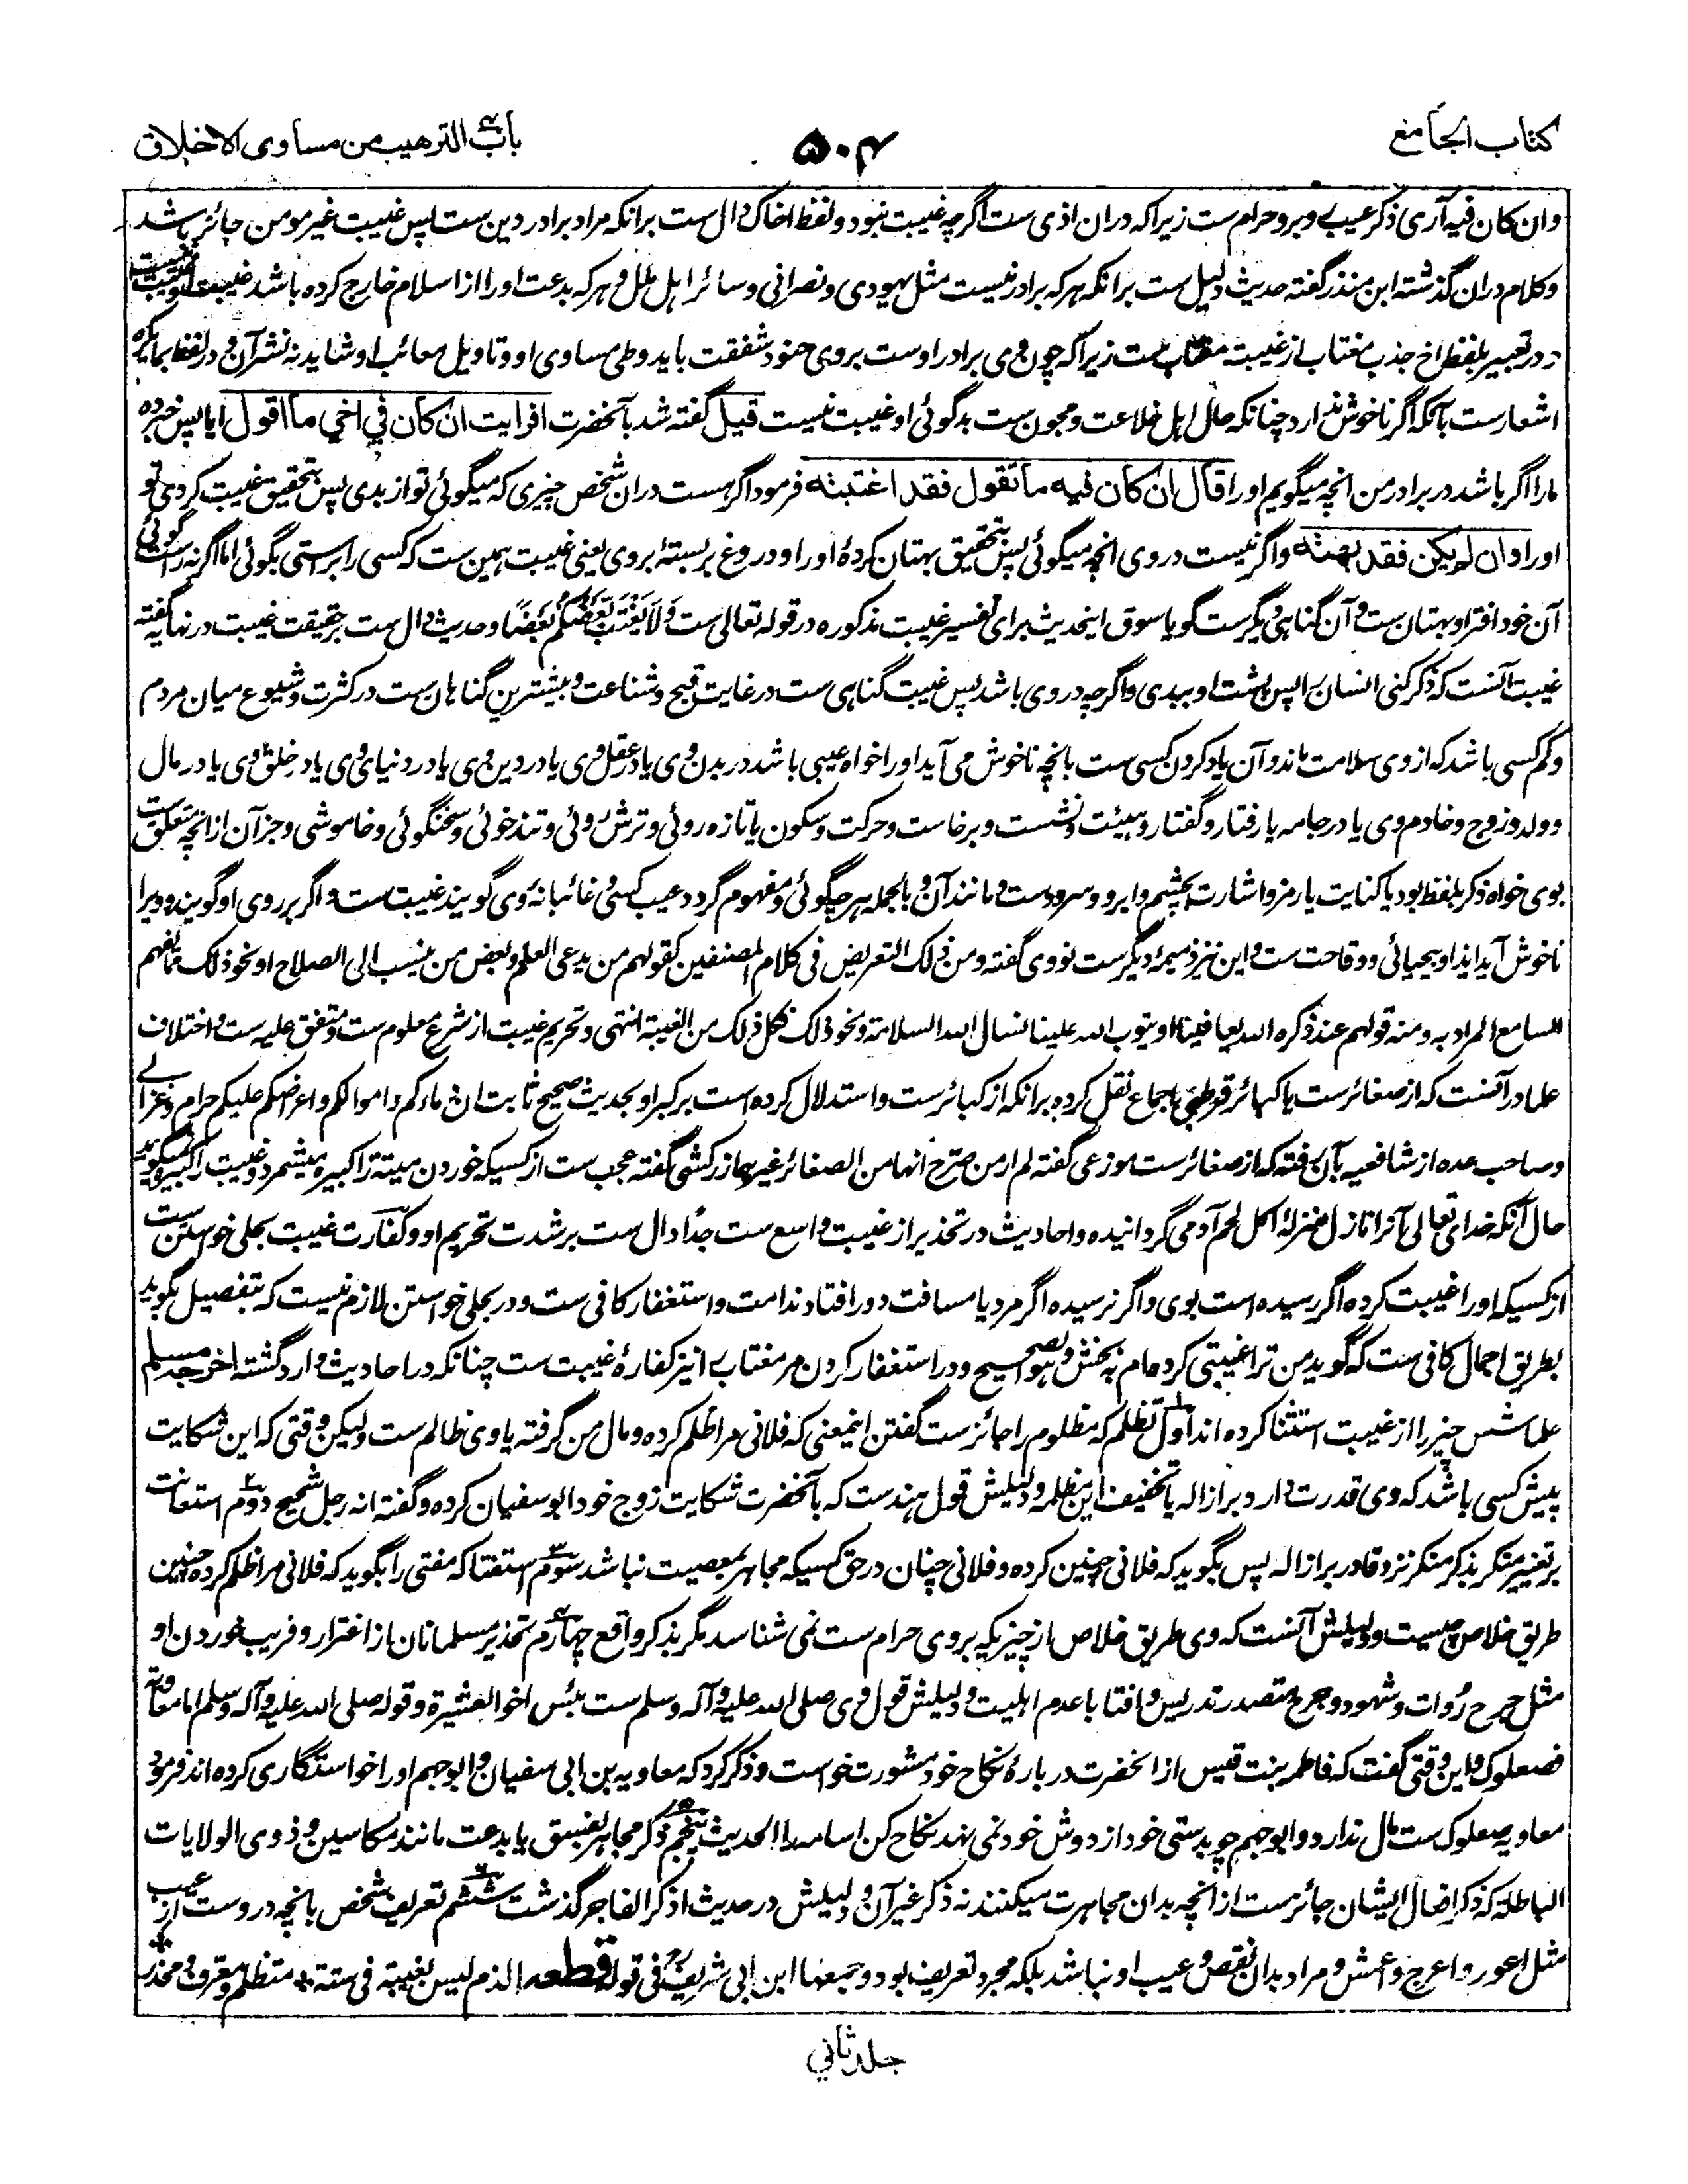 کتاب الجامع
۵۰۴
باب الترهیب من مساوی الاخلاق
وان کان فیه آری ذکر عیب وبرو حرام ست زیراکه دران اذی ست اگرچه غیبت نبود ولفظ اخاک دال ست برانکه مراد برادر دین ست پس غیبت غیر مومن جائز باشد
وکلام دران گذشته ابن منذر گفته حدیث دلیل ست برانکه هرکه برادر نیست مثل یهودی ونصرانی وسائر اهل ملل وهرکه بدعت او را از اسلام خارج کرده باشد غیبت او غیبت نیست
ودر تعبیر بلفظ اخ جذب مغتاب از غیبت ست زیراکه چون وی برادر اوست بروی حنو وشفقت باید وطی مساوی او وتاویل معائب او شاید نه نشر آن ودر لفظ بما یکره
اشعارست بآنکه اگر ناخوش ندارد چنانکه حال اهل خلاعت ومجون ست بدگوئی او غیبت نیست قیل گفته شد بآنحضرت افرایت ان کان فی اخی ما اقول ایا پس خبر ده
مارا اگر باشد در برادر من انچه میگویم او را قال ان کان فیه ما تقول فقد اغتبته فرمود اگر هست دران شخص چیزی که میگوئی تو از بدی پس بتحقیق غیبت کردی تو
او را وان لم یکن فقد بهته واگر نیست در وی انچه میگوئی پس بتحقیق بهتان کردهٔ او را ودروغ بربستهٔ بروی یعنی غیبت همین ست که کسی را براستی بگوئی اما اگر نه راست گوئی
آن خود افترا وبهتان ست وآن گناهی دیگرست گویا سوق اینحدیث برای تفسیر غیبت مذکوره در قوله تعالی ست وَلَا یَغْتَبْ بَعْضُکُمْ بَعْضًا وحدیث دال ست بر حقیقت غیبت در نهایه گفته
غیبت آنست که ذکر کنی انسان را پس پشت او ببدی واگرچه در وی باشد پس غیبت گناهی ست در غایت قبح وشناعت وبیشترین گناهان ست در کثرت وشیوع میان مردم
وکم کسی باشد که از وی سلامت ماند وآن یاد کردن کسی ست بانچه ناخوش می آید او را خواه عیبی باشد در بدن وی یا در عقل وی یا در دین وی یا در دنیای وی یا در خلق وی یا در مال
وولد وزوج وخادم وی یا در جامه یا رفتار وگفتار وهیئت ونشست وبرخاست وحرکت وسکون یا تازه روئی وترش روئی وتندخوئی وسخنگوئی وخاموشی وجز آن از انچه متعلق ست
بوی خواه ذکر بلفظ بود یا کنایت یا رمز واشارت بچشم وابرو وسر ودست ومانند آن وبالجمله هرچه گوئی ومفهوم گردد عیب کسی غائبانه وی گویند غیبت ست واگر بر روی او گویند وویرا
ناخوش آید ایذا وبیحیائی ووقاحت ست واین نیز ذمیمهٔ دیگرست نووی گفته ومن ذلک التعریض فی کلام المصنفین کقولهم من یدعی العلم وبعض من ینسب الی الصلاح او نحو ذلک مما یفهم
السامع المراد به ومنه قولهم عند ذکره الله یعافینا او یتوب الله علینا نسال الله السلامة ونحو ذلک فکل ذلک من الغیبة انتهی وتحریم غیبت از شرع معلوم ست ومتفق علیه ست واختلاف
علما در آنست که از صغائرست یا کبائر قرطبی اجماع نقل کرده برانکه از کبائرست واستدلال کرده است بر کبر او بحدیث صحیح ثابت ان دماءکم واموالکم واعراضکم علیکم حرام وغزالی
وصاحب عده از شافعیه بآن رفته که از صغائرست موزعی گفته لم ار من صرح انها من الصغائر غیرهما زرکشی گفته عجب ست از کسیکه خوردن میته را کبیره میشمرد وغیبت را کبیره نمیگوید
حال آنکه خدای تعالی آنرا نازل بمنزلهٔ اکل لحم آدمی گردانیده واحادیث در تحذیر از غیبت واسع ست جدا دال ست بر شدت تحریم او وکفارت غیبت بحلی خواستن ست
از کسیکه او را غیبت کرده اگر رسیده است بوی واگر نرسیده اگر مرد یا مسافت دور افتاد ندامت واستغفار کافی ست ودر بحلی خواستن لازم نیست که بتفصیل بگوید
بطریق اجمال کافی ست که گوید من ترا غیبتی کرده ام به بخش وهو الصحیح ودر استغفار کردن مر مغتاب را نیز کفارهٔ غیبت ست چنانکه در احادیث وارد گشته اخرجه مسلم
علما شش چیز را از غیبت استثنا کرده اند اول تظلم که مظلوم را جائزست گفتن اینمعنی که فلانی مرا ظلم کرده ومال من گرفته یا وی ظالم ست ولیکن وقتی که این شکایت
پیش کسی باشد که وی قدرت دارد بر ازاله یا تخفیف این مظلمه ودلیلش قول هندست که بآنحضرت شکایت زوج خود ابوسفیان کرده وگفته انه رجل شحیح دوم استعانت
بر تغییر منکر بذکر منکر نزد قادر بر ازاله پس بگوید که فلانی چنین کرده وفلانی چنان در حق کسیکه مجاهر بمعصیت نباشد سوم استفتا که مفتی را بگوید که فلانی مرا ظلم کرده چنین
طریق خلاص چیست ودلیلش آنست که وی طریق خلاص از چیزیکه بروی حرام ست نمی شناسد مگر بذکر واقع چهارم تحذیر مسلمانان از اغترار وفریب خوردن او
مثل جرح روات وشهود وجرح متصدر تدریس وافتا با عدم اهلیت ودلیلش قول وی صلی الله علیه وآله وسلم ست بئس اخو العشیرة وقوله صلی الله علیه وآله وسلم اما معاویة
فصعلوک واین وقتی گفت که فاطمه بنت قیس از انحضرت در بارهٔ نکاح خود مشورت خواست وذکر کرد که معاویه بن ابی سفیان وابوجهم او را خواستگاری کرده اند فرمود
معاویه صعلوک ست مال ندارد وابوجهم چوبدستی خود از دوش خود نمی نهد نکاح کن اسامه را الحدیث پنجم ذکر مجاهر بفسق یا بدعت مانند مکاسین وذوی الولایات
الباطله که ذکر افعال ایشان جائزست از انچه بدان مجاهرت میکنند نه ذکر غیر آن ودلیلش در حدیث اذکروا الفاجر گذشت ششم تعریف شخص بانچه دروست از عیب
مثل اعور واعرج واعمش ومراد بدان نقص وعیب او نباشد بلکه مجرد تعریف بود وجمعها ابن ابی شریف فی قوله قطعه الذم لیس بغیبة فی ستة متظلم ومعرف ومحذر
جلد ثانی